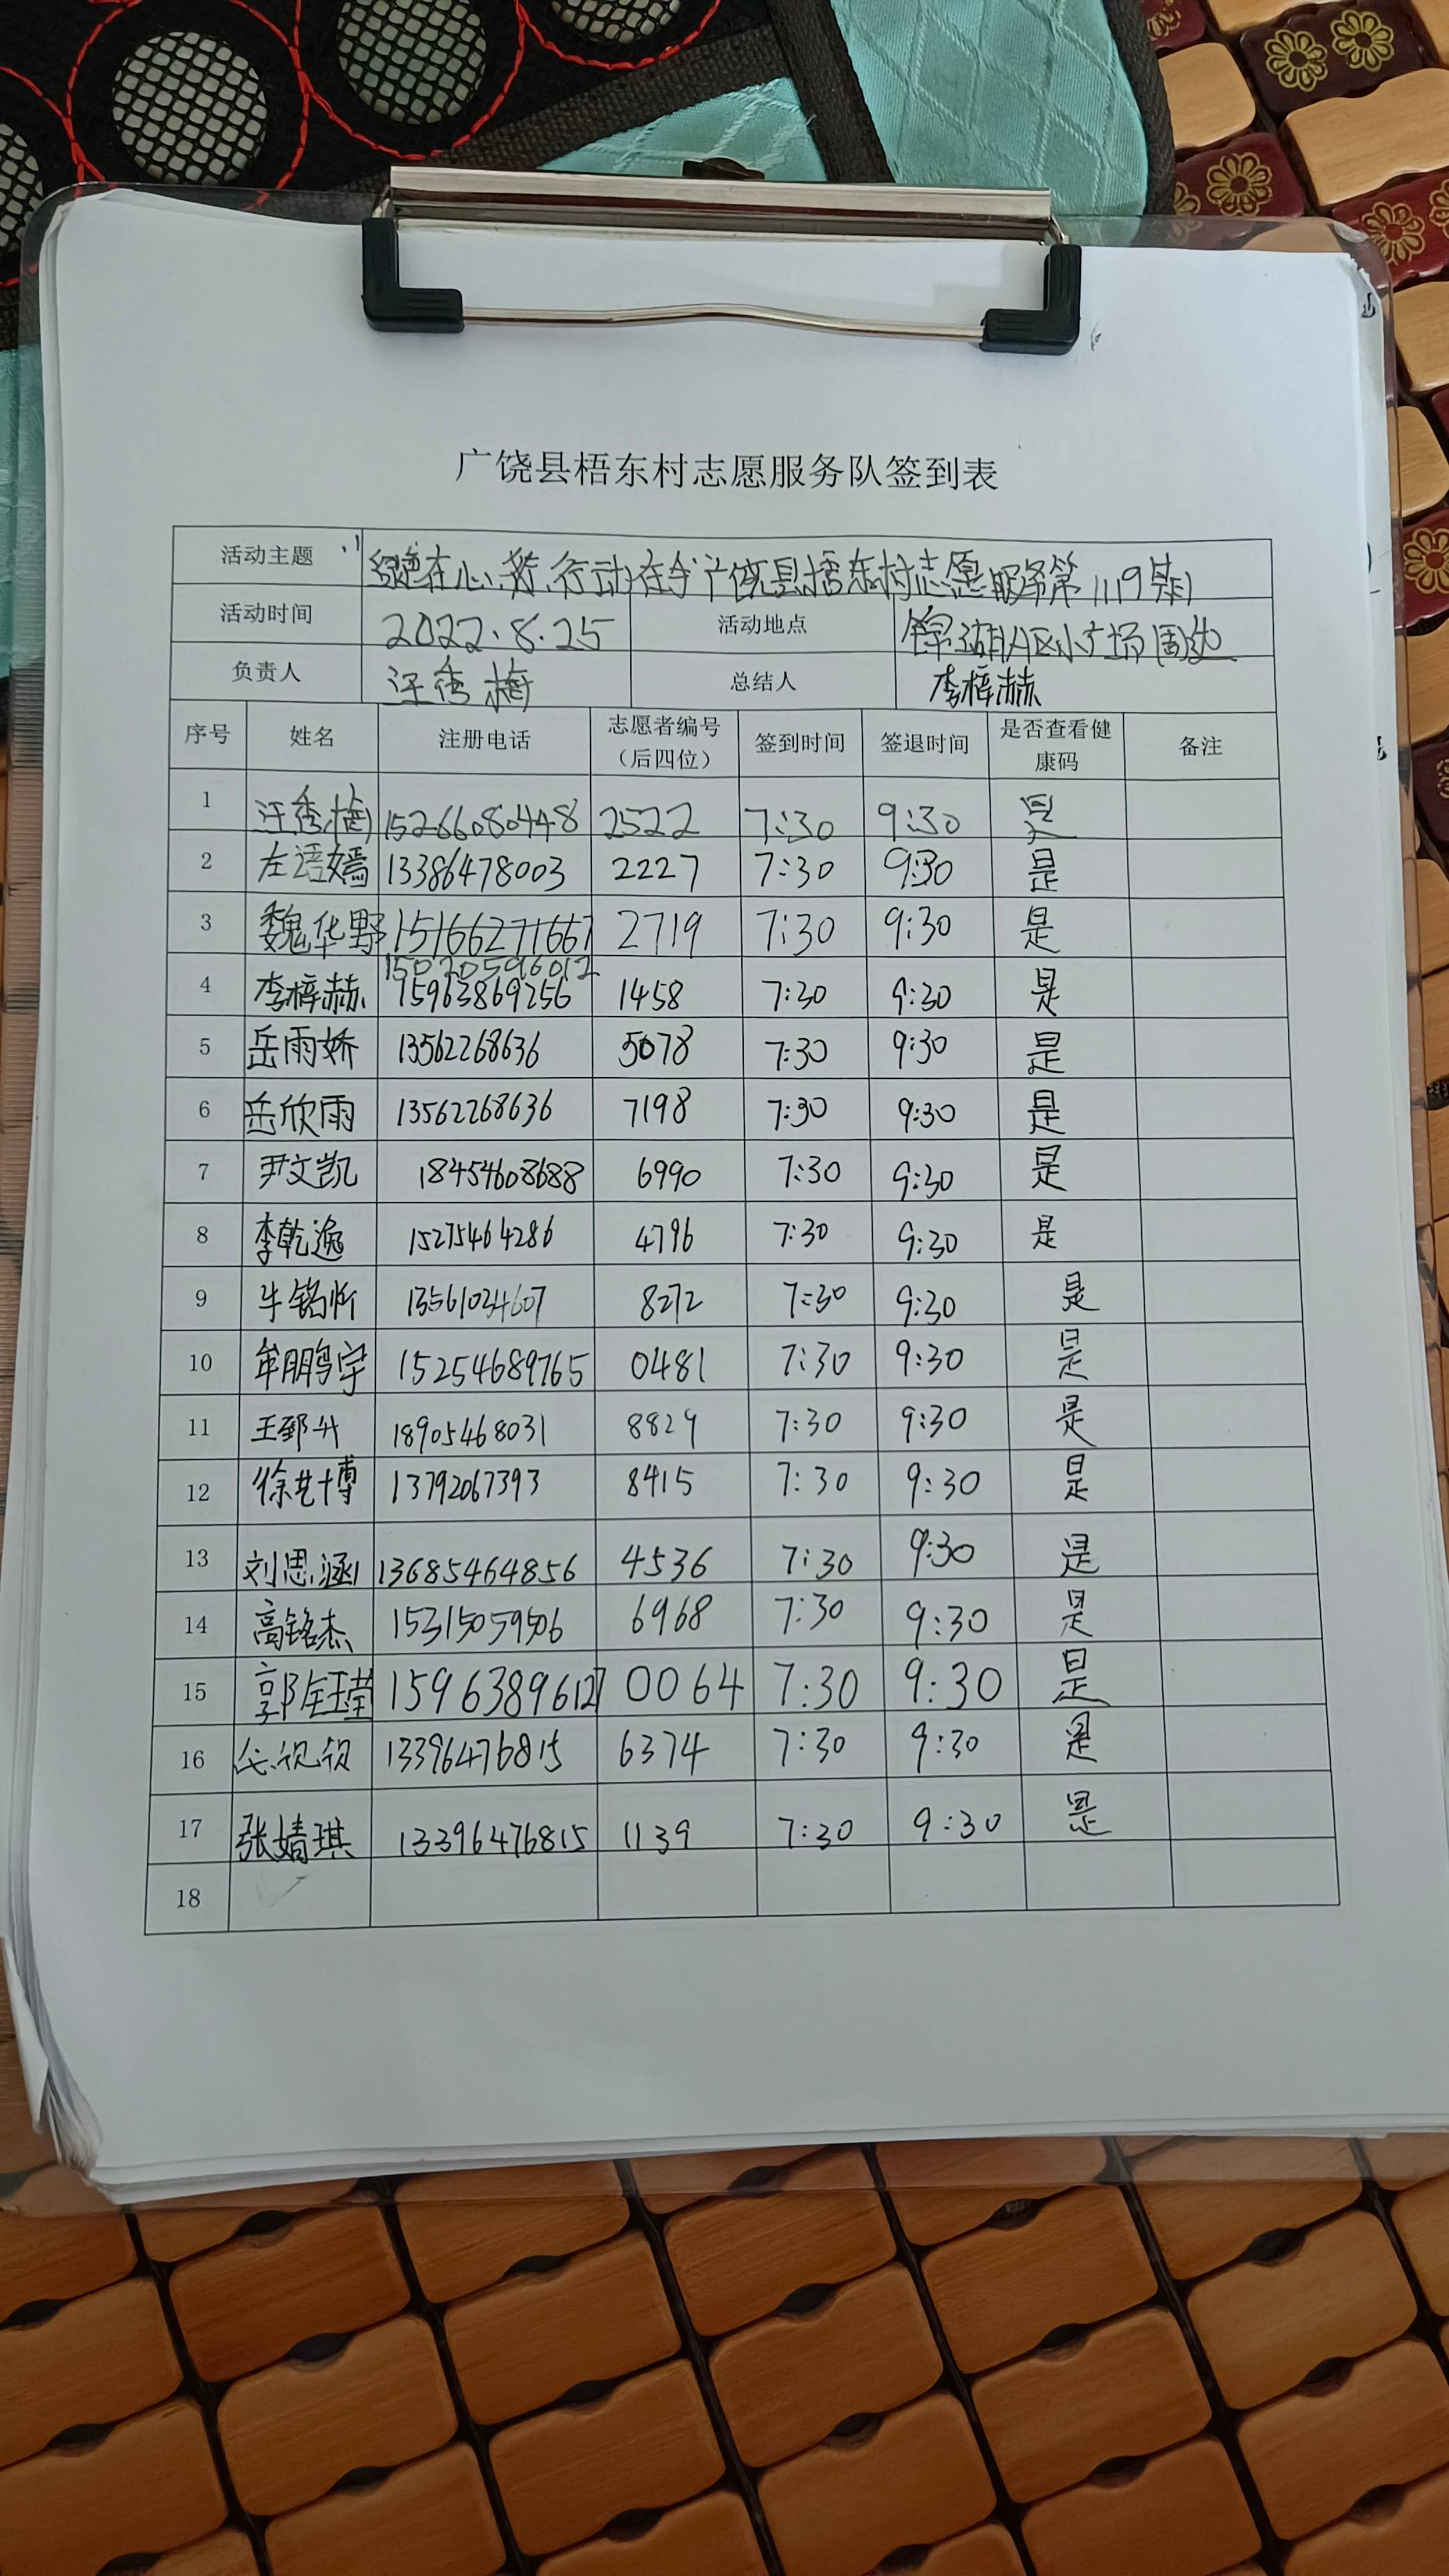 广饶县梧东村志愿服务队签到表
活动主题 绿色在心 行动在手 广饶县梧东村志愿服务第1119期
活动时间 2022.8.25 活动地点 锦湖A区小广场周边
负责人 汪秀梅 总结人 李梓赫
序号 姓名 注册电话 志愿者编号（后四位） 签到时间 签退时间 是否查看健康码 备注
1 汪秀梅 15266080448 2522 7:30 9:30 是
2 左语嫣 13386478003 2227 7:30 9:30 是
3 魏华野 15166271667 2719 7:30 9:30 是
4 李梓赫 15020596012 15963869256 1458 7:30 9:30 是
5 岳雨娇 13562268636 5078 7:30 9:30 是
6 岳欣雨 13562268636 7198 7:30 9:30 是
7 尹文凯 18454608688 6990 7:30 9:30 是
8 李乾逸 15275464286 4796 7:30 9:30 是
9 牛铭忻 13561034607 8272 7:30 9:30 是
10 牟鹏宇 15254689765 0481 7:30 9:30 是
11 王郅升 18905468031 8829 7:30 9:30 是
12 徐艺博 13792067393 8415 7:30 9:30 是
13 刘思涵 13685464856 4536 7:30 9:30 是
14 高铭杰 15315059506 6968 7:30 9:30 是
15 郭钰莹 15963896127 0064 7:30 9:30 是
16 13396476815 6374 7:30 9:30 是
17 张婧琪 13396476815 1139 7:30 9:30 是
18